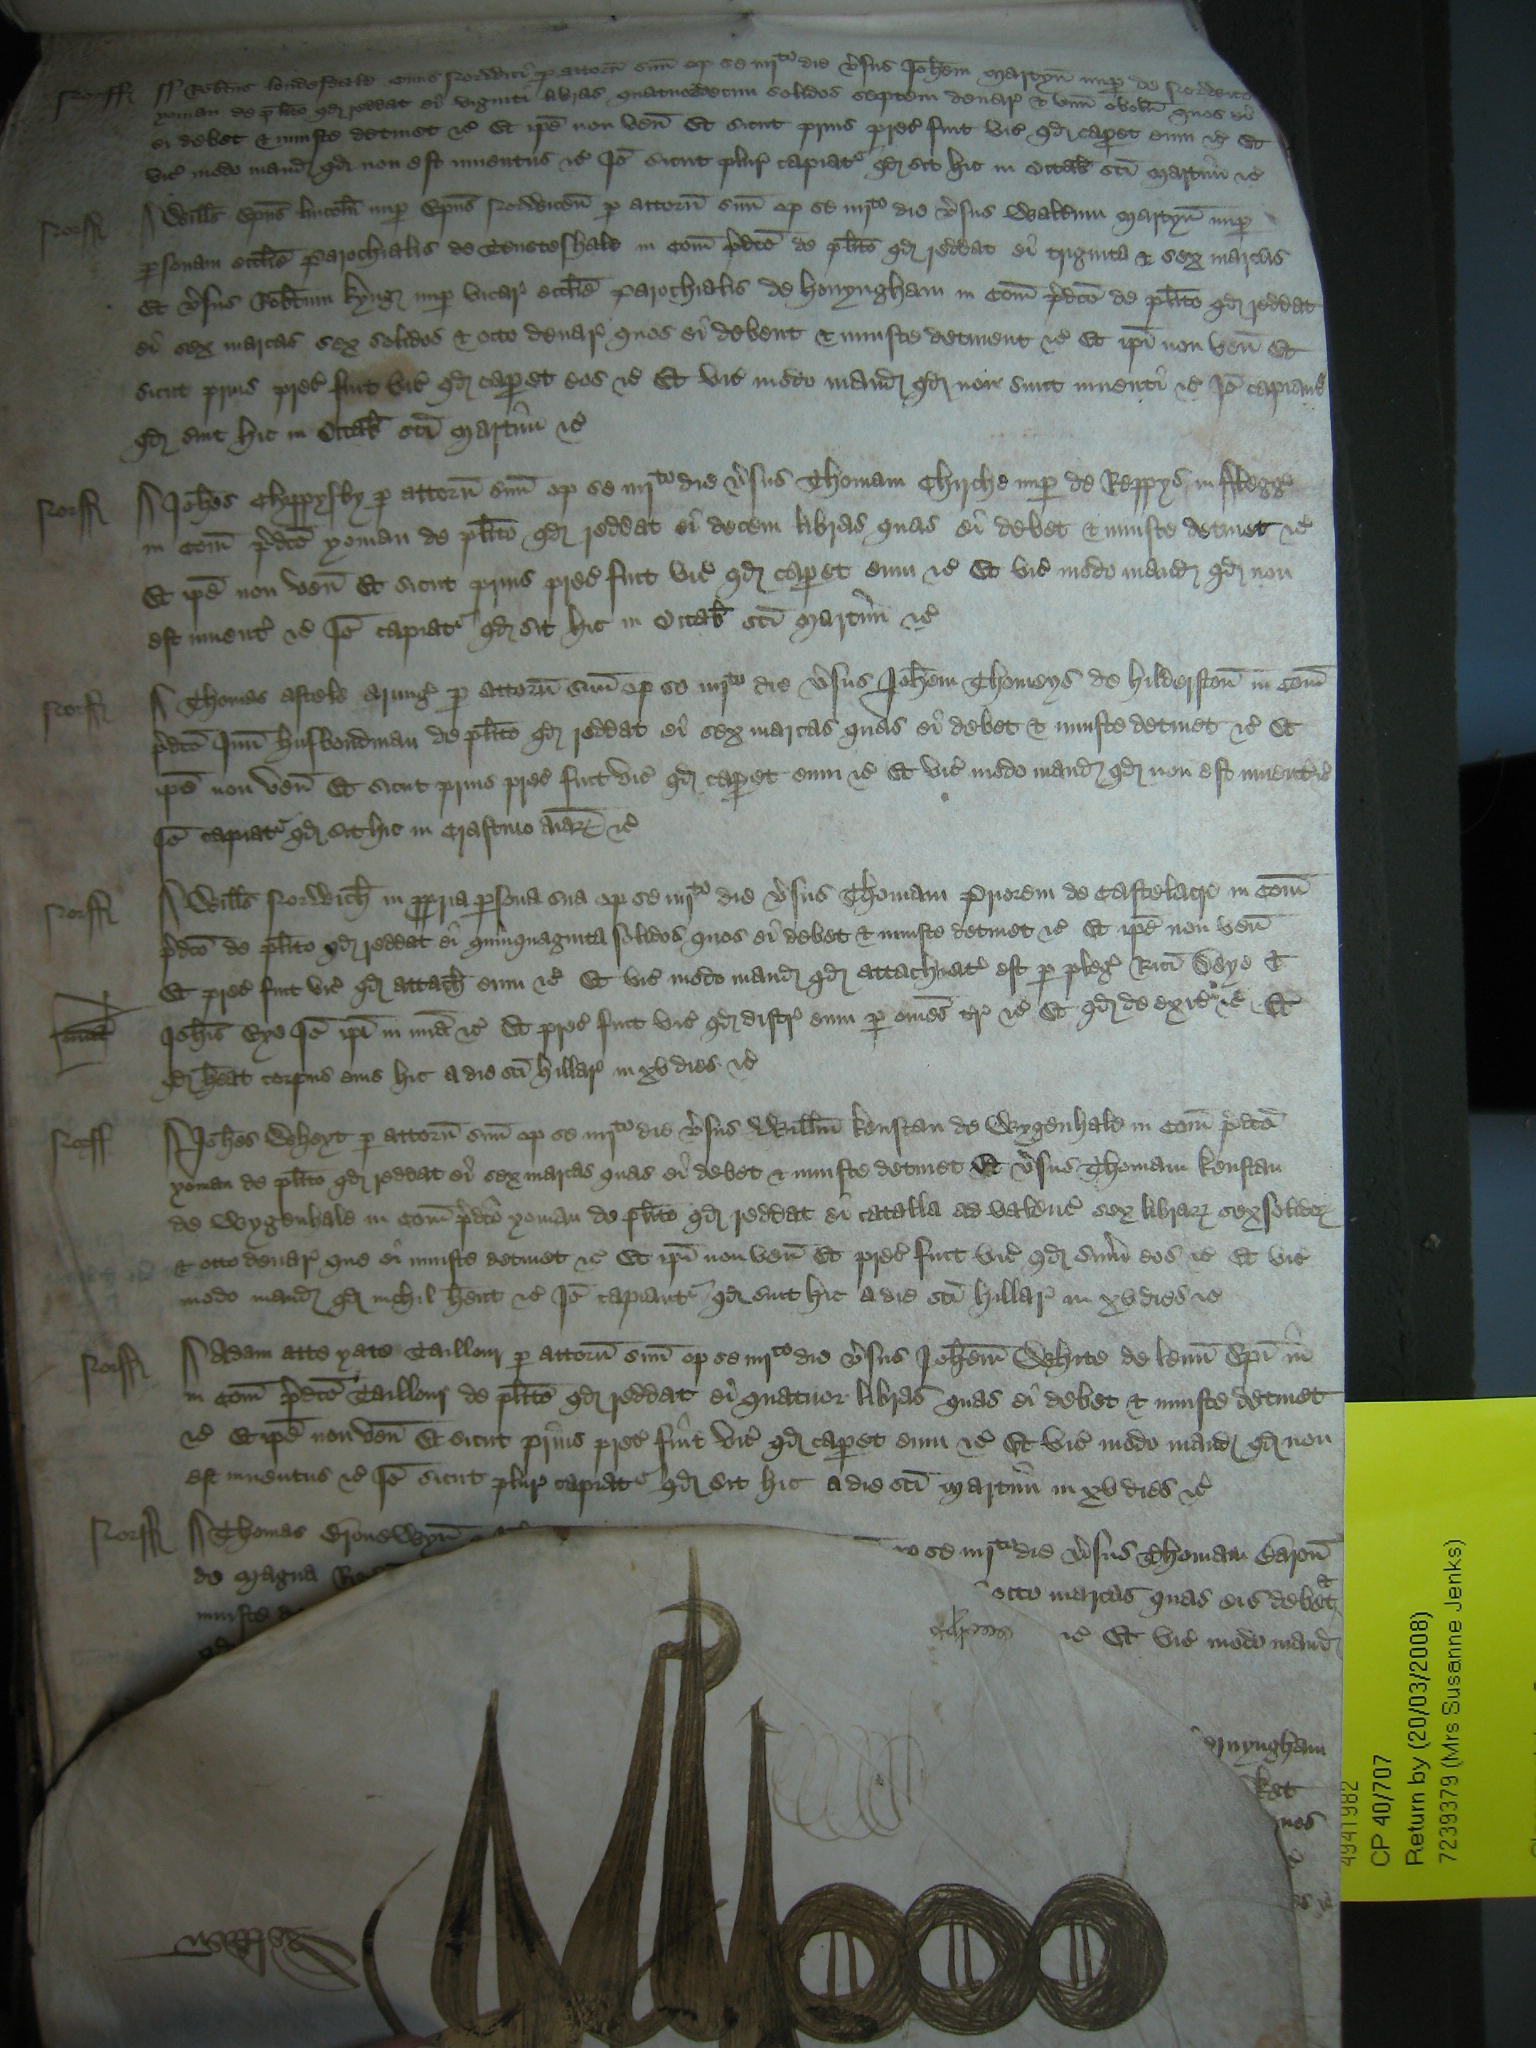 Norff ss Robtus londesdale Ciuis Norwici p attorn suu op se iiijto die v'sus Johem Martyn nup de Norwico
yoman de plito qd reddat ei viginti libras quatuordecim solidos septem denar & unu obolu quos ei
ei debet & iniuste detinet &c Et ipe non ven Et sicut prius prec fuit vic qd caperet eum &c Et
vic modo mand qd non est inuentus &c Jo sicut plur capiat' qd sit hic in Octab sci Martini &c
Norff Wills Epus lincoln nup Epus Norwicen p attorn suu op se iiijto die v'sus Waltum Martyn nup
p'sonam ecclie parochialis de in Com p'dco de plito qd reddat ei triginta & sex marcas
Et v'sus Robtum Kyng nup vicar ecclie parochialis de Honyngham in Com p'dco de plito qd reddat
ei sex marcas sex solidos & octo denar quos ei debent & iniuste detinent &c Et ipi non ven Et
sicut prius prec fuit vic qd caperet eos &c Et vic modo mand qd non sunt inuenti &c Jo capiant'
qd sint hic in Octab sci Martini &c
Norff Johes Chippysby p attorn suu op se iiijto die v'sus Thomam Chirche nup de Reppys in Flegge
in Com p'dco yoman de plito qd reddat ei decem libras quas ei debet & iniuste detinet &c
Et ipe non ven Et sicut prius prec fuit vic qd caperet eum &c Et vic modo mand qd non
est inuent' &c Jo capiat' qd sit hic in Octab sci Martini &c
Norff Thomas Astele Armig' p attorn suu op se iiijto die v'sus Johem Thomeys de Hilderston in Com
p'dco Jun husbondman de plito qd reddat ei sex marcas quas ei debet & iniuste detinet &c Et
ipe non ven Et sicut prius prec fuit vic qd caperet eum &c Et vic modo mand qd non est inuent' &c
Jo capiat' qd sit hic in Crastino Aiar &c
Norff Wills Norwich in ppria p'sona sua op se iiijto die v'sus Thomam Priorem de Castelacre in Com
p'dco de plito qd reddat ei quinquaginta solidos quos ei debet & iniuste detinet &c Et ipe non ven
Et prec fuit vic qd attach eum &c Et vic modo mand qd attachiat' est p pleg' Rici Deye &
Johis Eye Jo ipi in mia &c Et prec fuit vic qd distr' eum p omes tr' &c Et qd de exit' &c Et
qd heat corpus eius hic a die sci Hillar' in xv dies &c
Norff Johes Wheyt p attorn suu op se iiijto die v'sus Willm Konstan de Wygenhale in Com p'dco
yoman de plito qd reddat ei sex marcas quas ei debet & iniuste detinet Et v'sus Thomam Konstan
de Wygenhale in Com p'dco yoman de plito qd reddat ei catalla ad valenc' sex librar' sex solidor'
& octo denar' que ei iniuste detinet &c Et ipi non ven Et prec fuit vic qd sum eos &c Et vic
modo mand qd nichil hent &c Jo capiant' qd sint hic a die sci Hillar' in xv dies &c
Norff Adam atte yate Taillour p attorn suu op se iiijto die v'sus Johem White de lenn Epi
in Com p'dco Taillour de plito qd reddat ei quatuor libras quas ei debet & iniuste detinet
&c Et ipe non ven Et sicut prius prec fuit vic qd caperet eum &c Et vic modo mand qd non
est inuentus &c Jo sicut plur' capiat' qd sit hic a die sci Martini in xv dies &c
Norff Thomas op se iiijto die v'sus Thomam Baron
de Magna octo marcas quas eis debet
iniuste &c Et vic modo mand
4941982
CP 40/707
Return by (20/03/2008)
7239379 (Mrs Susanne Jenks)